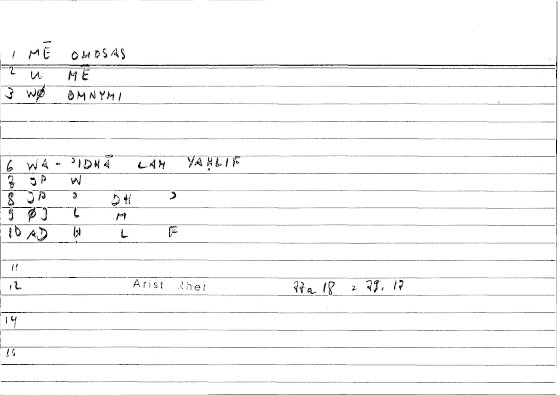 1 MĒ OMOSAS
2 U MĒ
3 WØ OMNYMI
6 WA-'IDHĀ LAM YAḤLIF
7 JP W
8 JP ' DH '
9 ØJ L M
10 AD Ḥ L F
11
12 Arist Rhet 77a 18 = 79.17
14